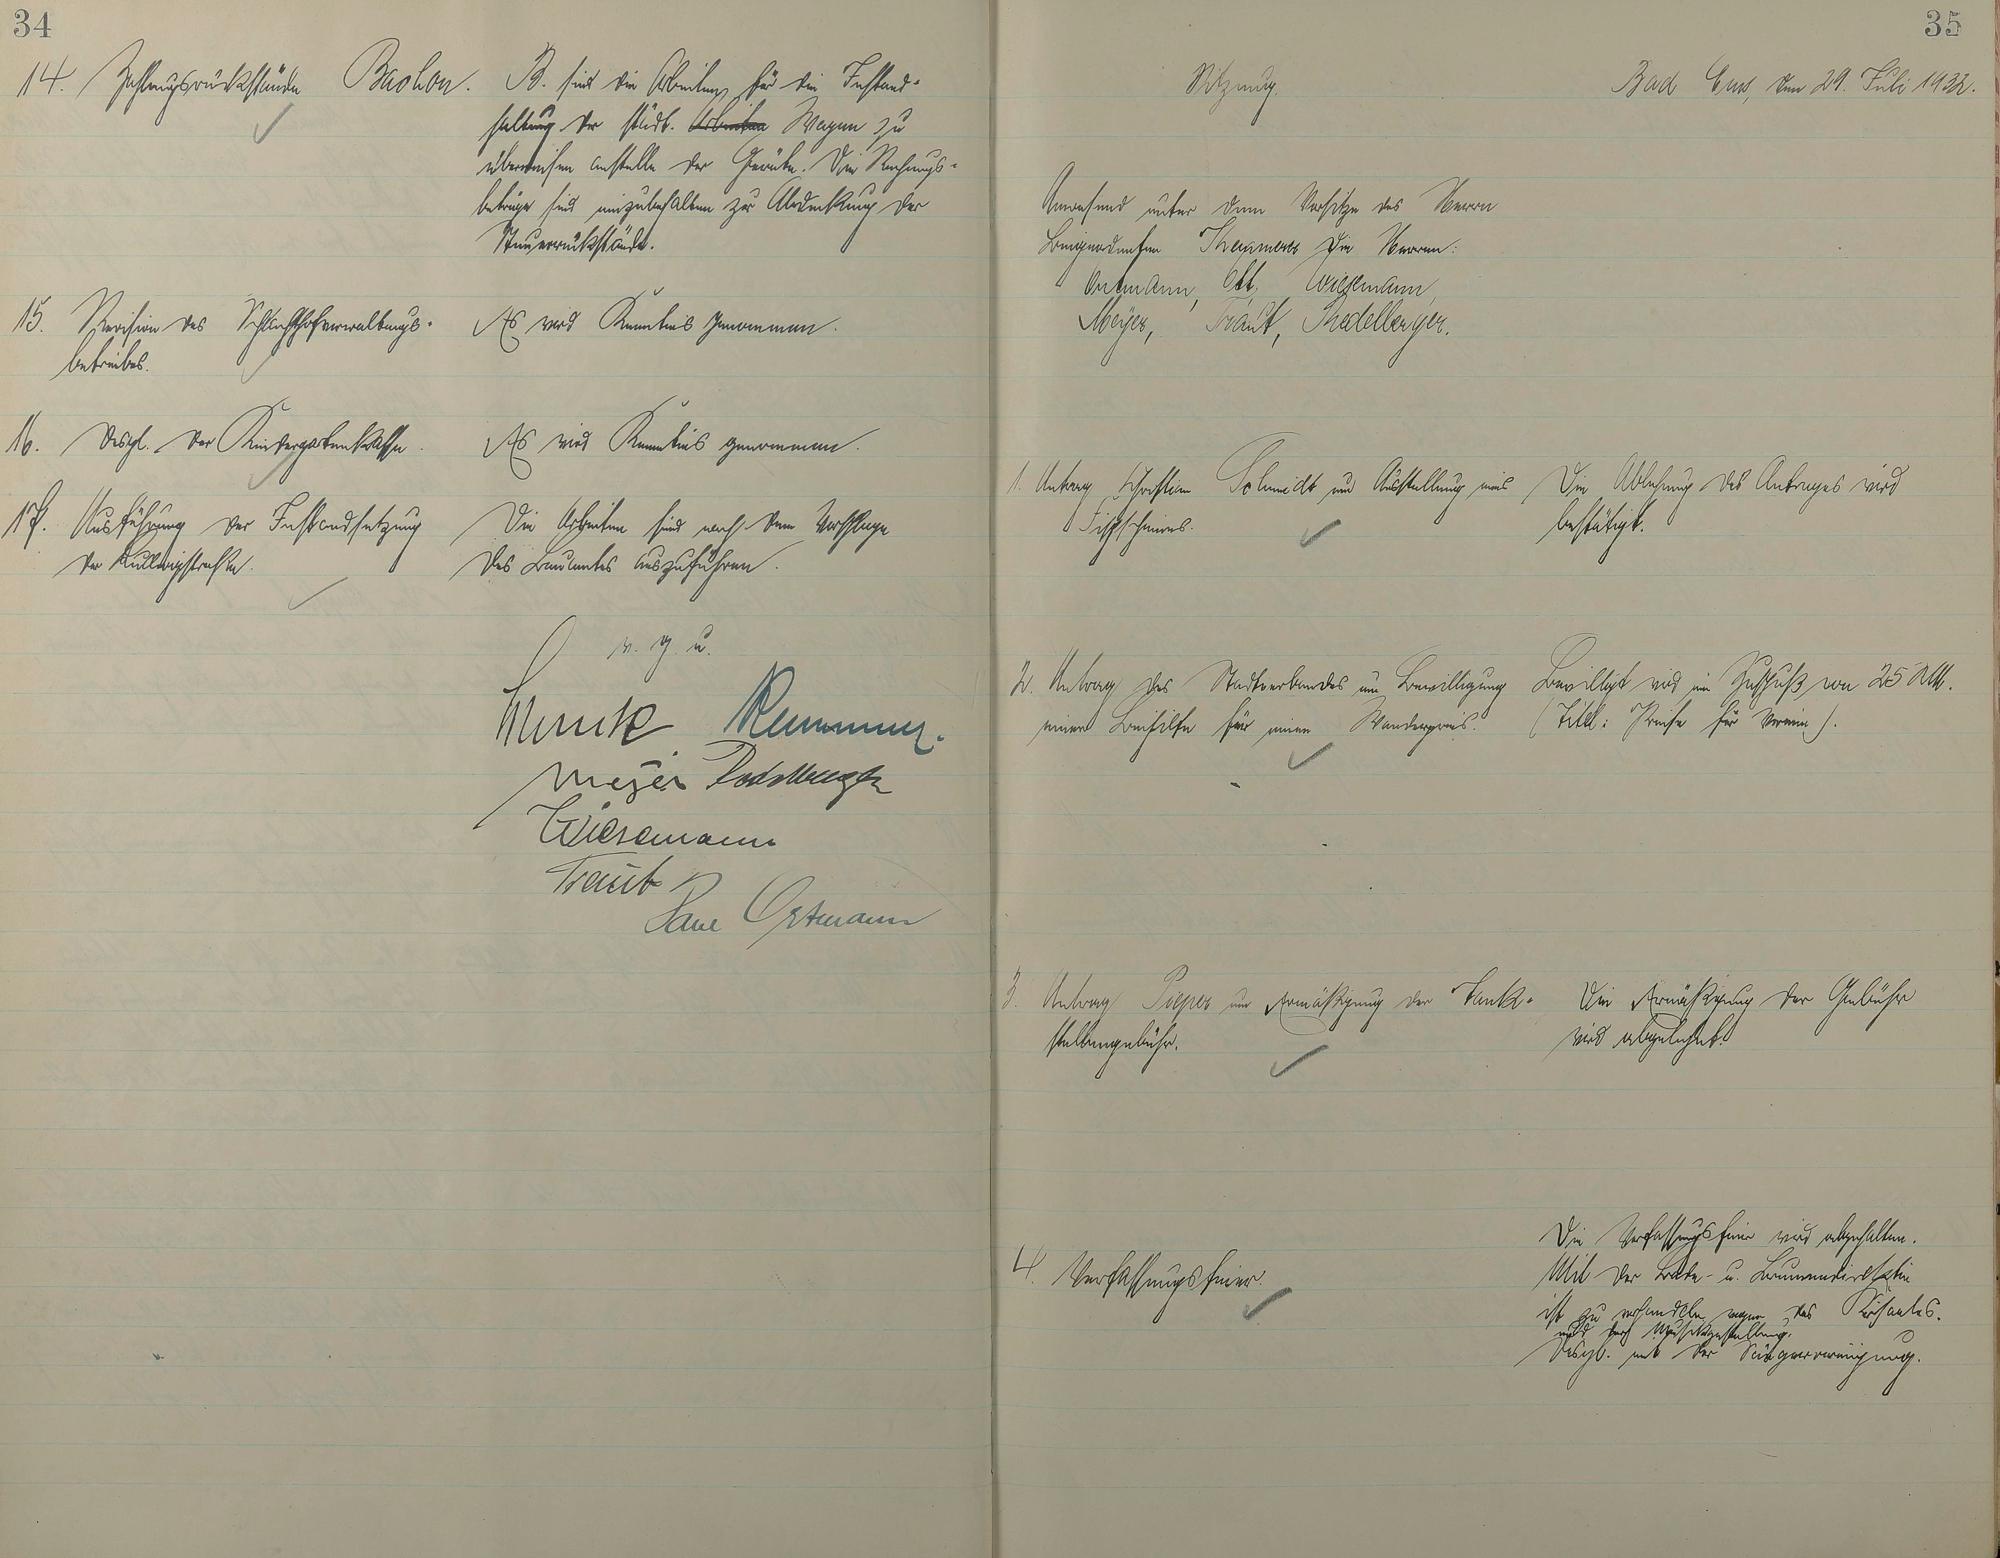 34
14. Zahlungsrückstände Bachon.
B. sind die Arbeiten für die Instand-
haltung der städt. Arbeiten Wagen zu
überweisen anstelle der Geräte. Die Rechnungs-
beträge sind einzubehalten zur Abdeckung der
Steuerrückstände.
15. Revision des Schlachthofverwaltungs-
betriebes.
Es wird Kenntnis genommen.
16. Desgl. der Kindergartenkasse.
Es wird Kenntnis genommen.
17. Ausführung der Instandsetzung
der Ludwigstraße.
Die Arbeiten sind nach dem Vorschlage
des Bauamtes auszuführen.
v. g. u.
Meyer
Wiesemann
Traut
Ortmann
35
Sitzung.
Bad Ems, den 29. Juli 1932.
Anwesend unter dem Vorsitze des Herrn
Beigeordneten die Herren:
Ortmann, Ott, Wiesemann,
Meyer, Traut,
1. Antrag Christian Schmidt um Ausstellung eines
Fischscheines.
Die Ablehnung des Antrages wird
bestätigt.
2. Antrag des Stadtverbandes um Bewilligung
einer Beihilfe für einen Wanderpreis.
Bewilligt wird ein Zuschuß von 25 RM.
(Titel: Preise für Vereine).
3. Antrag Pieper um Ermäßigung der Tank-
stellengebühr.
Die Ermäßigung der Gebühr
wird abgelehnt.
4. Verfassungsfeier.
Die Verfassungsfeier wird abgehalten.
Mit der Bade- u. Brunnendirektion
ist zu verhandeln wegen des Kursaales.
und der Musikgestellung.
Desgl. mit der Sängervereinigung.